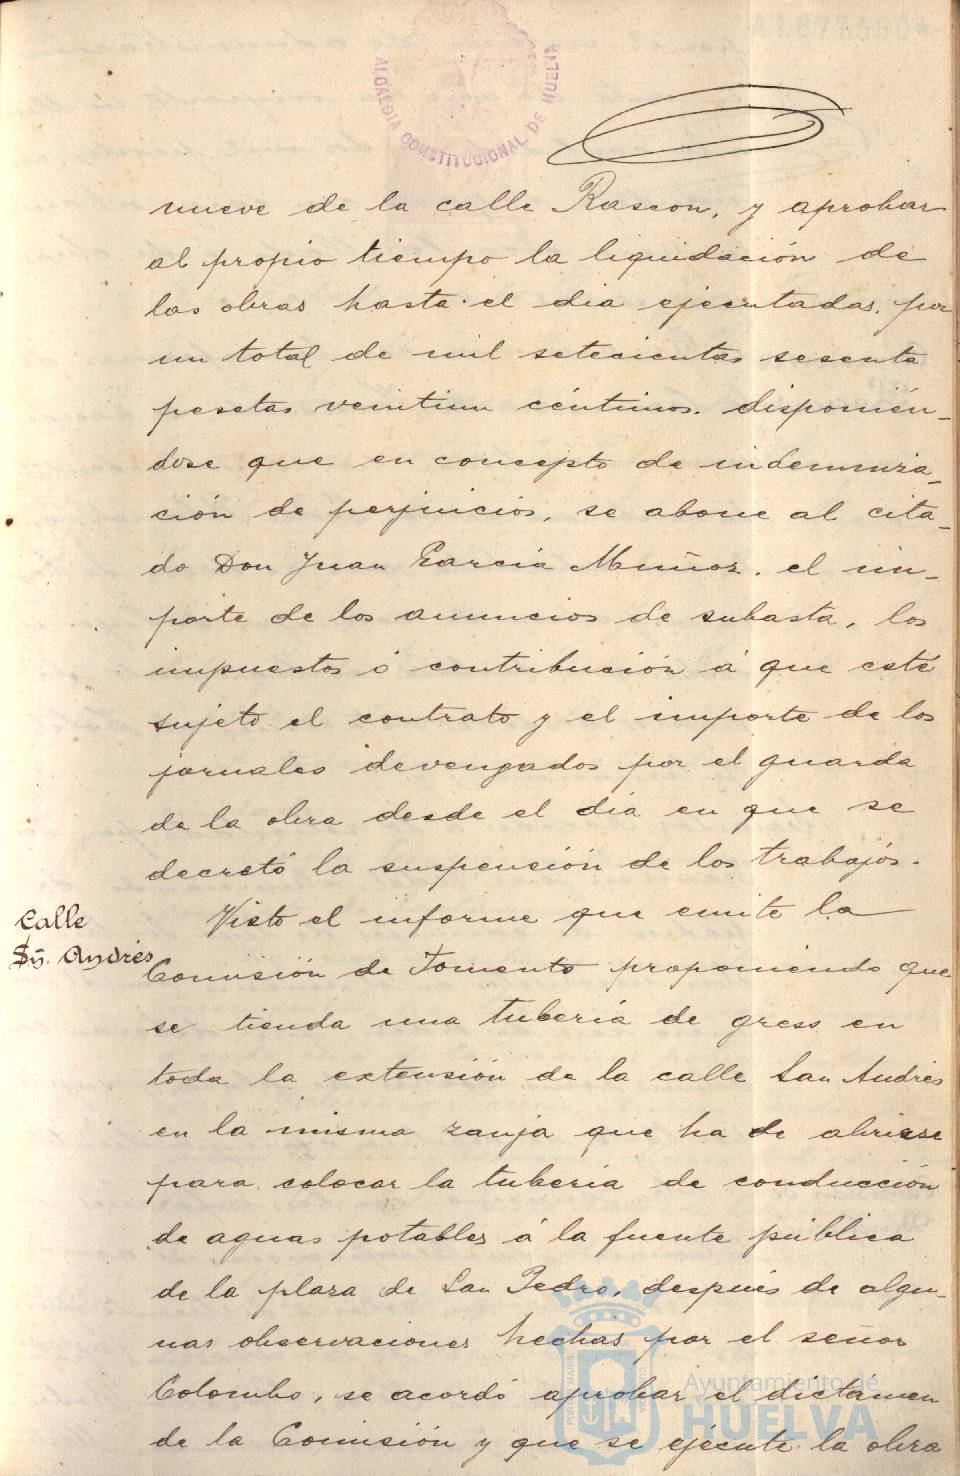 A1.877.560*
ALCALDIA CONSTITUCIONAL DE HUELVA
nueve de la calle Rascon, y aprobar
al propio tiempo la liquidación de
las obras hasta el dia ejecutadas, por
un total de mil setecientas sesenta
pesetas veintiun céntimos. disponién-
dose que en concepto de indemniza-
ción de perjuicios, se abone al cita-
do Don Juan Garcia Muñoz. el im-
porte de los anuncios de subasta, los
impuestos ó contribución á que esté
sujeto el contrato y el importe de los
jornales devengados por el guarda
de la obra desde el dia en que se
decretó la suspensión de los trabajos.
Calle
Sn. Andrés
Visto el informe que emite la
Comisión de Fomento proponiendo que
se tienda una tuberia de gress en
toda la extensión de la calle San Andrés
en la misma zanja que ha de abrirse
para colocar la tuberia de conducción
de aguas potables á la fuente pública
de la plaza de San Pedro, después de algu-
nas observaciones hechas por el señor
Colombo, se acordó aprobar el dictamen
de la Comisión y que se ejecute la obra
Ayuntamiento de
HUELVA